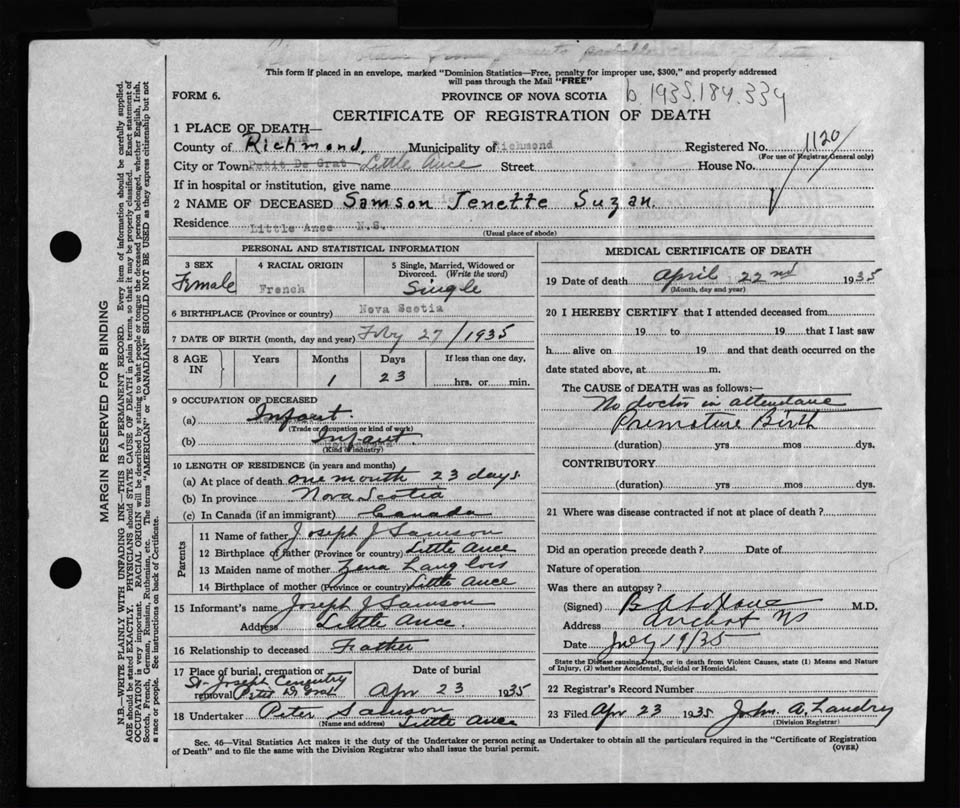 This form if placed in an envelope, marked "Dominion Statistics—Free, penalty for improper use, $300," and properly addressed
will pass through the Mail "FREE"
FORM 6.
PROVINCE OF NOVA SCOTIA
b.1935.184.334
CERTIFICATE OF REGISTRATION OF DEATH
1 PLACE OF DEATH—
County of Richmond, Municipality of Richmond Registered No. 1120
(For use of Registrar General only)
City or Town Petit De Grat Little Ance Street House No.
If in hospital or institution, give name
2 NAME OF DECEASED Samson Jenette Suzan.
Residence Little Ance N.S.
(Usual place of abode)
PERSONAL AND STATISTICAL INFORMATION
3 SEX Female
4 RACIAL ORIGIN French
5 Single, Married, Widowed or Divorced. (Write the word) Single
6 BIRTHPLACE (Province or country) Nova Scotia
7 DATE OF BIRTH (month, day and year) Feby 27/1935
8 AGE IN Years Months Days If less than one day,
1 23 hrs. or min.
9 OCCUPATION OF DECEASED
(a) Infant.
(Trade or occupation or kind of work)
(b) Infant
(Kind of industry)
10 LENGTH OF RESIDENCE (in years and months)
(a) At place of death one month 23 days.
(b) In province Nova Scotia
(c) In Canada (if an immigrant) Canada
Parents
11 Name of father Joseph J Samson
12 Birthplace of father (Province or country) Little Ance
13 Maiden name of mother Zena Langlois
14 Birthplace of mother (Province or country) Little Ance
15 Informant's name Joseph J Samson
Address Little Ance.
16 Relationship to deceased Father
17 Place of burial, cremation or removal St. Joseph Cemqutry Peter D Grat
Date of burial Apr 23 1935
18 Undertaker Peter Samson
(Name and address) Little Ance
MEDICAL CERTIFICATE OF DEATH
19 Date of death April 22nd 1935
(Month, day and year)
20 I HEREBY CERTIFY that I attended deceased from
19 to 19 that I last saw
h alive on 19 and that death occurred on the
date stated above, at m.
The CAUSE of DEATH was as follows:—
No doctor in attendance
Premature Birth
(duration) yrs mos dys.
CONTRIBUTORY
(duration) yrs mos dys.
21 Where was disease contracted if not at place of death?
Did an operation precede death? Date of
Nature of operation
Was there an autopsy?
(Signed) M.D.
Address Arichat NS
Date July 19/35
State the Disease causing Death, or in death from Violent Causes, state (1) Means and Nature
of Injury, (2) whether Accidental, Suicidal or Homicidal.
22 Registrar's Record Number
23 Filed Apr 23 1935 John A. Landry
(Division Registrar)
Sec. 46—Vital Statistics Act makes it the duty of the Undertaker or person acting as Undertaker to obtain all the particulars required in the "Certificate of Registration
of Death" and to file the same with the Division Registrar who shall issue the burial permit.
(OVER)
MARGIN RESERVED FOR BINDING
N.B.—WRITE PLAINLY WITH UNFADING INK—THIS IS A PERMANENT RECORD. Every item of information should be carefully supplied.
AGE should be stated EXACTLY. PHYSICIANS should STATE CAUSE OF DEATH in plain terms, so that it may be properly classified. Exact statement of
OCCUPATION is very important. RACIAL ORIGIN will be described by stating to what people or tongue the deceased person belonged, whether English, Irish,
Scotch, French, German, Russian, Ruthenian, etc. The terms "AMERICAN" or "CANADIAN" SHOULD NOT BE USED as they express citizenship but not
a race or people. See instructions on back of Certificate.